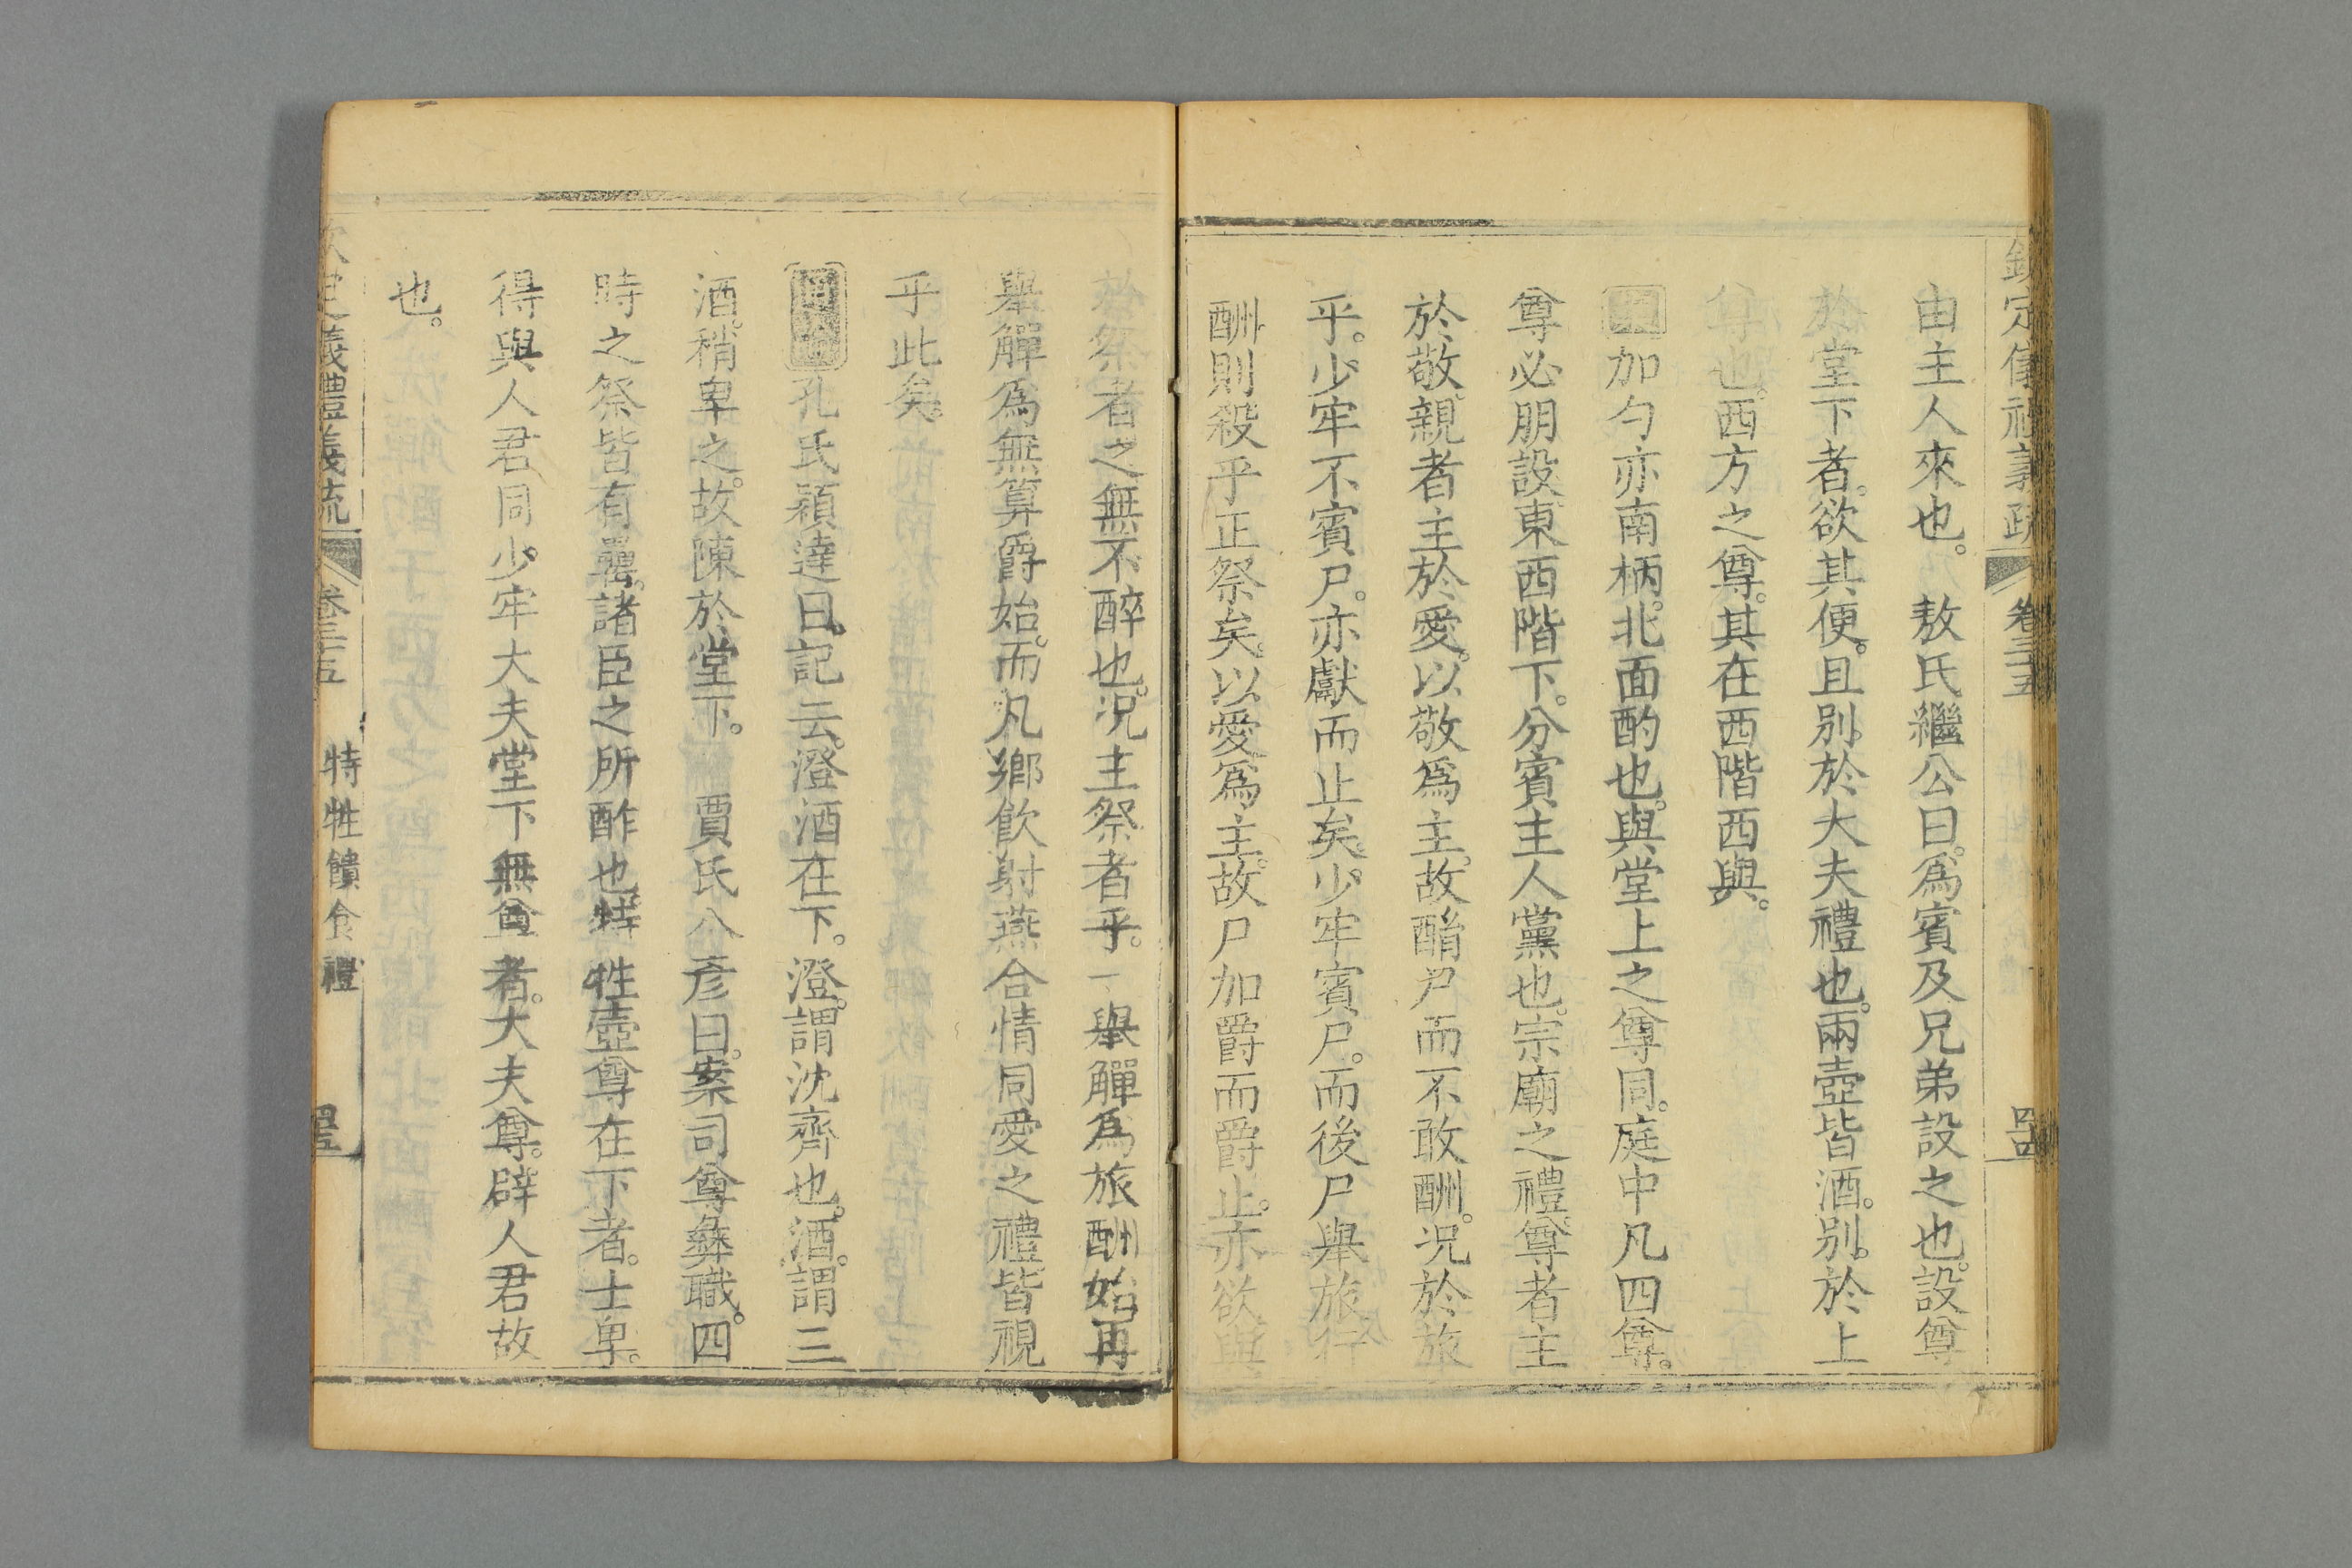 欽定儀禮義疏 卷三十五 四十四
由主人來也。敖氏繼公曰。爲賓及兄弟設之也。設尊
於堂下者。欲其便。且別於大夫禮也。兩壺皆酒。別於上
尊也。西方之尊。其在西階西與。
加勺亦南柄。北面酌也。與堂上之尊同。庭中凡四尊。
尊必朋設。東西階下。分賓主人黨也。宗廟之禮。尊者主
於敬。親者主於愛。以敬爲主。故酳尸而不敢酬。況於旅
乎。少牢不賓尸。亦獻而止矣。少牢賓尸。而後尸舉旅行
酬。則殺乎正祭矣。以愛爲主。故尸加爵而爵止。亦欲與
祭者之無不醉也。況主祭者乎。一舉觶爲旅酬始。再
舉觶爲無算爵始。而凡鄉飲射燕合情同愛之禮。皆視
乎此矣。
孔氏穎達曰。記云。澄酒在下。澄。謂沈齊也。酒。謂三
酒。稍卑之。故陳於堂下。賈氏公彥曰。案司尊彝職。四
時之祭皆有罍。諸臣之所酢也。特牲壺尊在下者。士卑。
得與人君同。少牢大夫堂下無尊者。大夫尊。辟人君故
也。
欽定儀禮義疏 卷三十五 特牲饋食禮 四十五